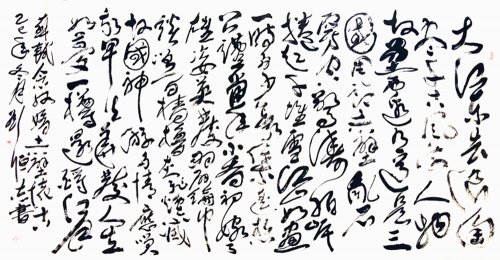 大江东去浪淘
尽千古风流人物
故垒西边人道是三
国周郎赤壁乱石
穿空惊涛拍岸
捲起千堆雪江山如画
一时多少豪杰遥想
公瑾当年小乔初嫁了
雄姿英发羽扇纶巾
谈笑间樯橹灰飞烟灭
故国神游多情应笑
我早生华发人生
如梦一樽还酹江月
苏轼念奴娇赤壁怀古
年冬月 书